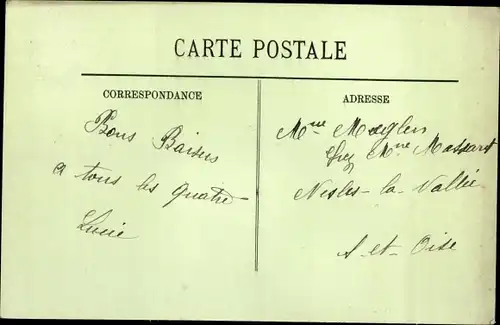 CARTE POSTALE
CORRESPONDANCE
Bons Baisers
a tous les quatre
Lucie
ADRESSE
Mme
chez Mme Massart
Nesles-la-Vallée
S-et-Oise